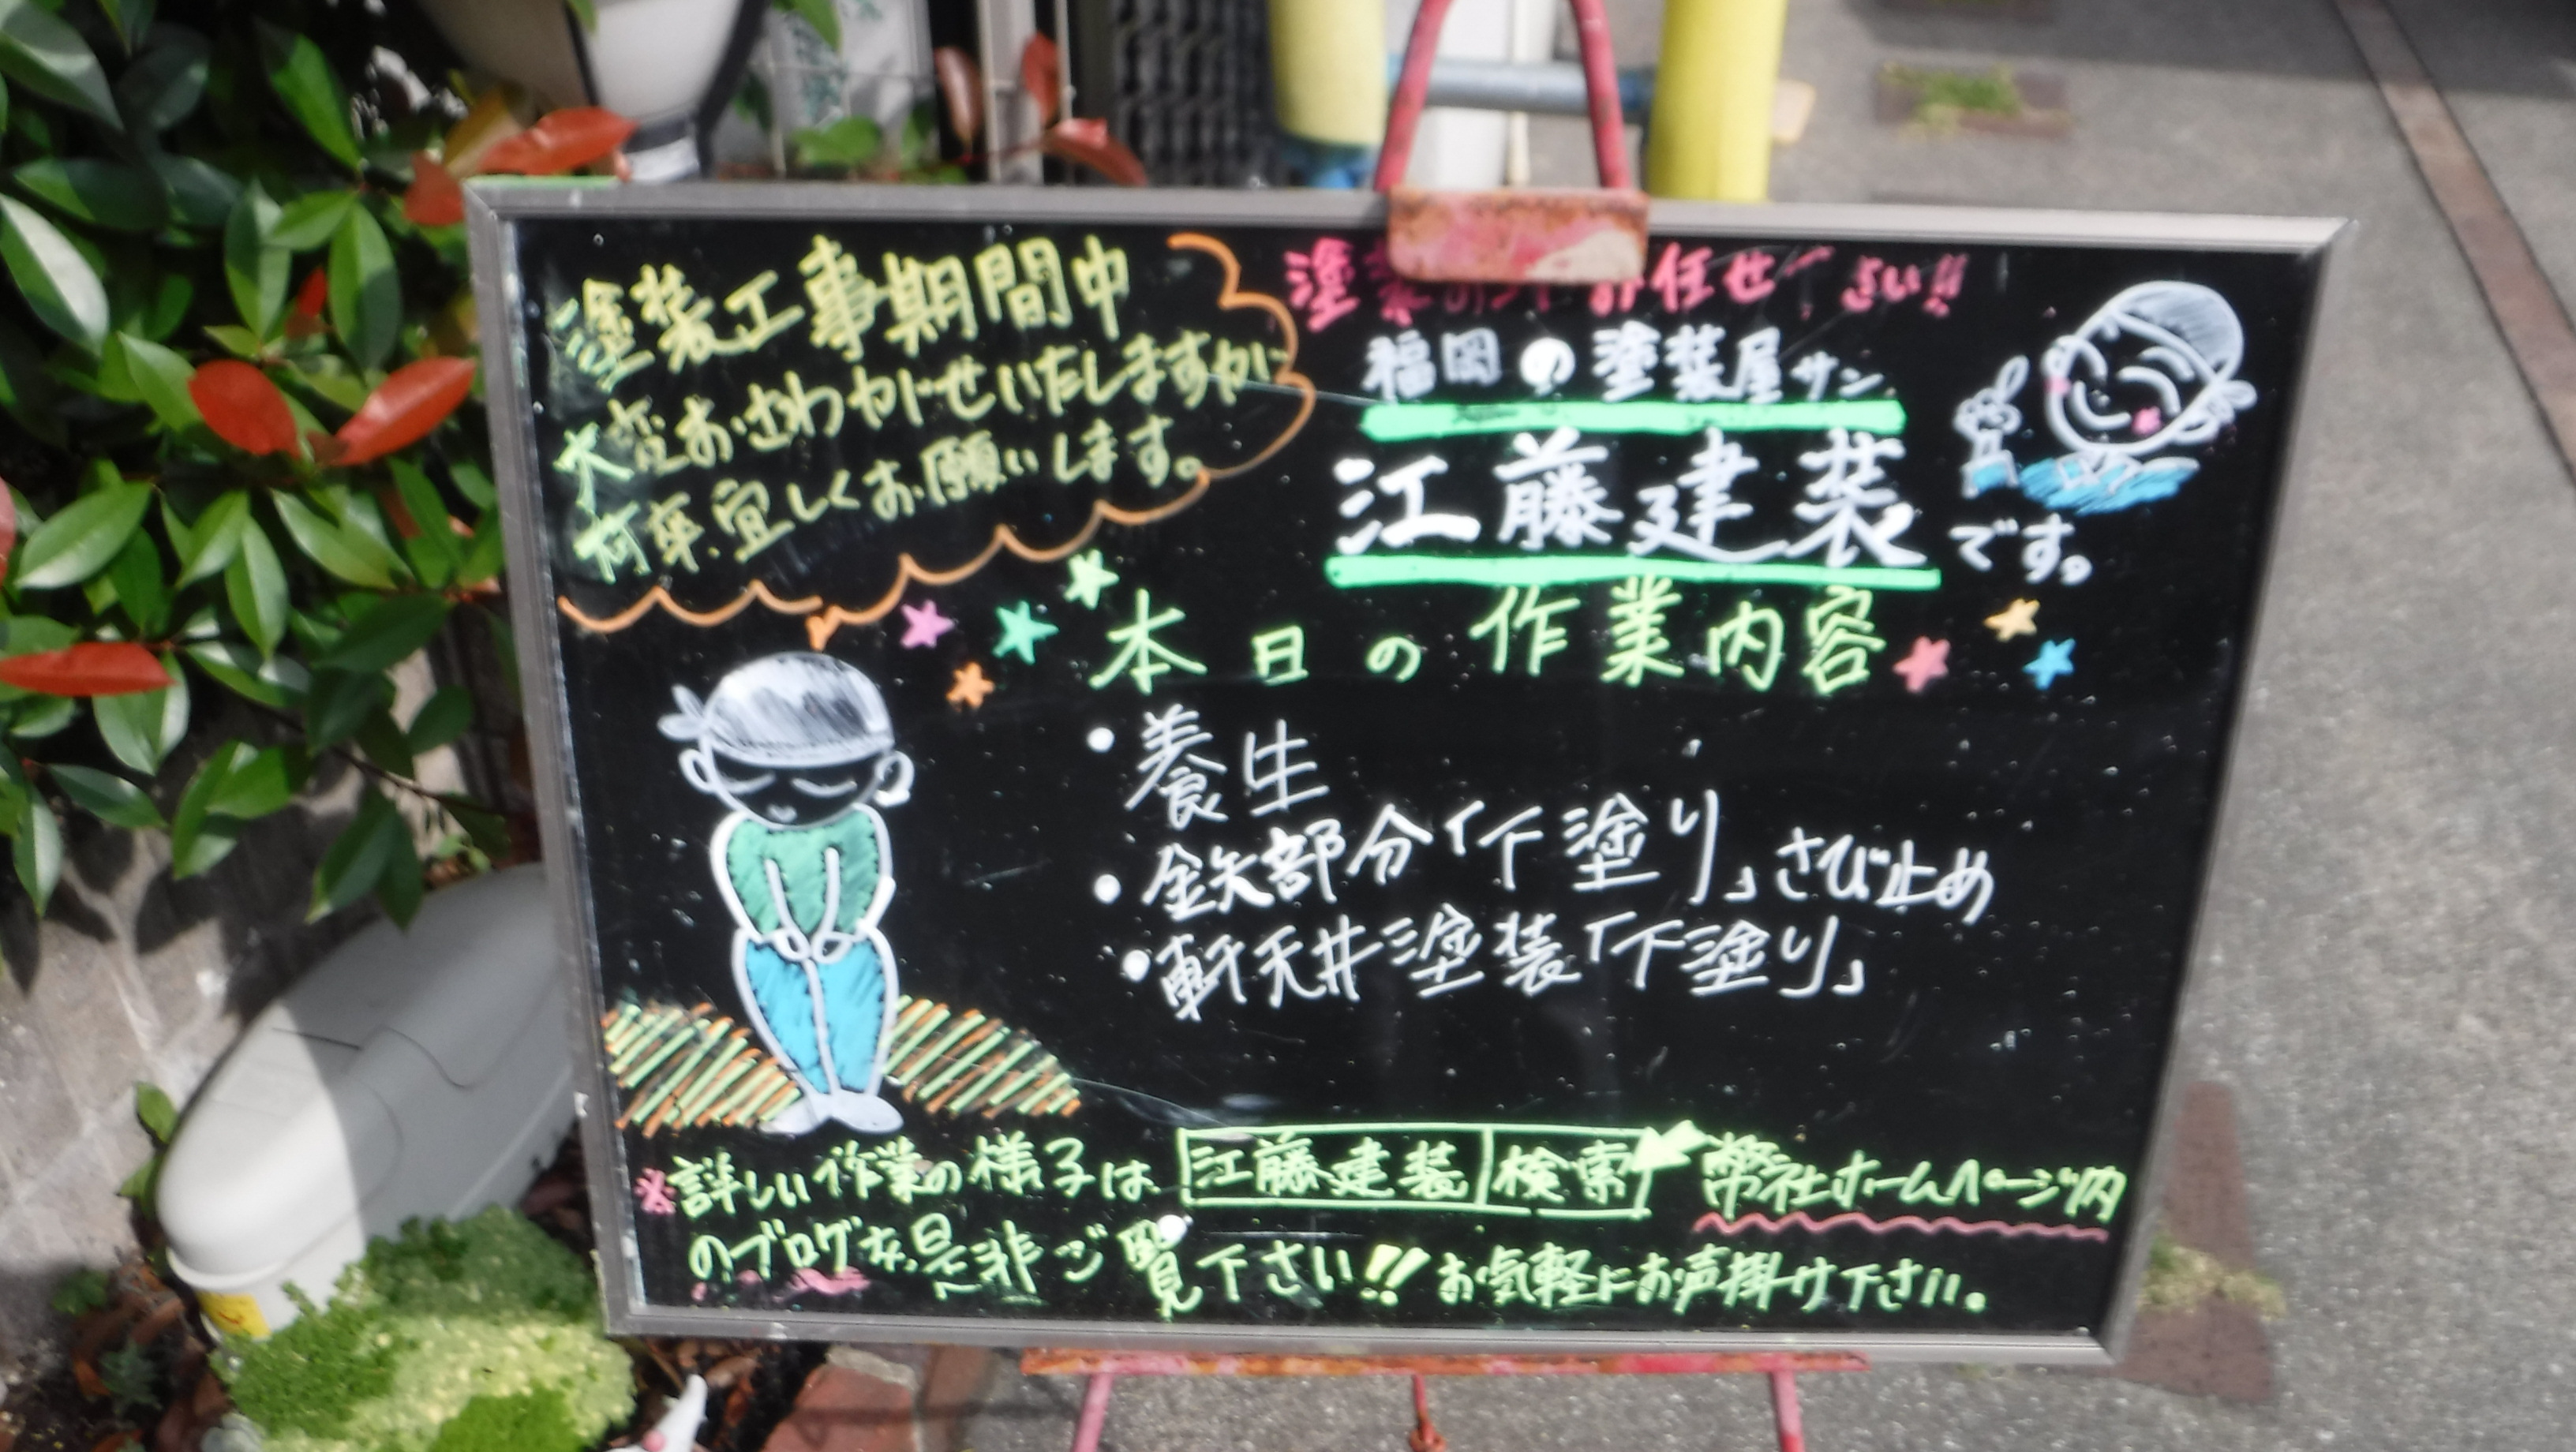 塗装工事期間中
大変おさわがせいたしますが
何卒宜しくお願いします。
塗装のことお任せ さい!!
福岡の塗装屋サン
江藤建装です。
本日の作業内容
・養生
・鉄部分「下塗り」さび止め
・軒天井塗装「下塗り」
※詳しい作業の様子は 江藤建装 検索 弊社ホームページ内
のブログを是非ご覧下さい!!お気軽にお声掛け下さい。